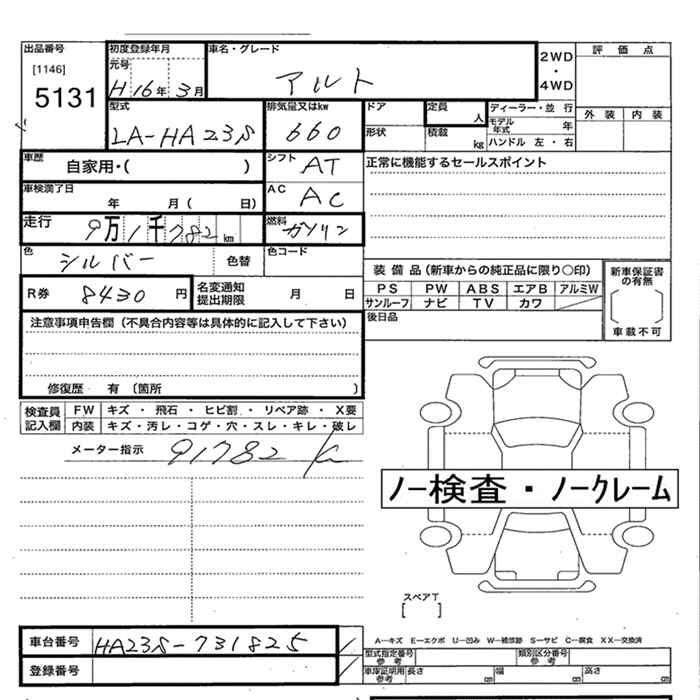 出品番号 初度登録年月 車名・グレード 2WD 評価点
[1146] 元号 ・
5131 H16年3月 アルト 4WD
型式 排気量又はkw ドア 定員 人 ディーラー・並行 外装 内装
LA-HA23S 660 形状 積載 kg モデル年式 年
ハンドル 左・右
車歴 自家用・( ) シフト AT 正常に機能するセールスポイント
車検満了日 年 月( 日) AC AC
走行 9万1千782km 燃料 ガソリン
色 シルバー 色替 色コード
装備品(新車からの純正品に限り○印) 新車保証書の有無
R券 8430円 名変通知提出期限 月 日 PS PW ABS エアB アルミW
サンルーフ ナビ TV カワ
後日品 車載不可
注意事項申告欄(不具合内容等は具体的に記入して下さい)
修復歴 有 (箇所 )
検査員 FW キズ・飛石・ヒビ割・リペア跡・X要
記入欄 内装 キズ・汚レ・コゲ・穴・スレ・キレ・破レ
メーター指示 91782 K
ノー検査・ノークレーム
スペアT
[ ]
車台番号 HA23S-731825
A−キズ E−エクボ U−凹み W−補修跡 S−サビ C−腐食 XX−交換済
型式指定番号 参考 類別区分番号 参考
登録番号 車庫証明用 参考 長さ cm 幅 cm 高さ cm